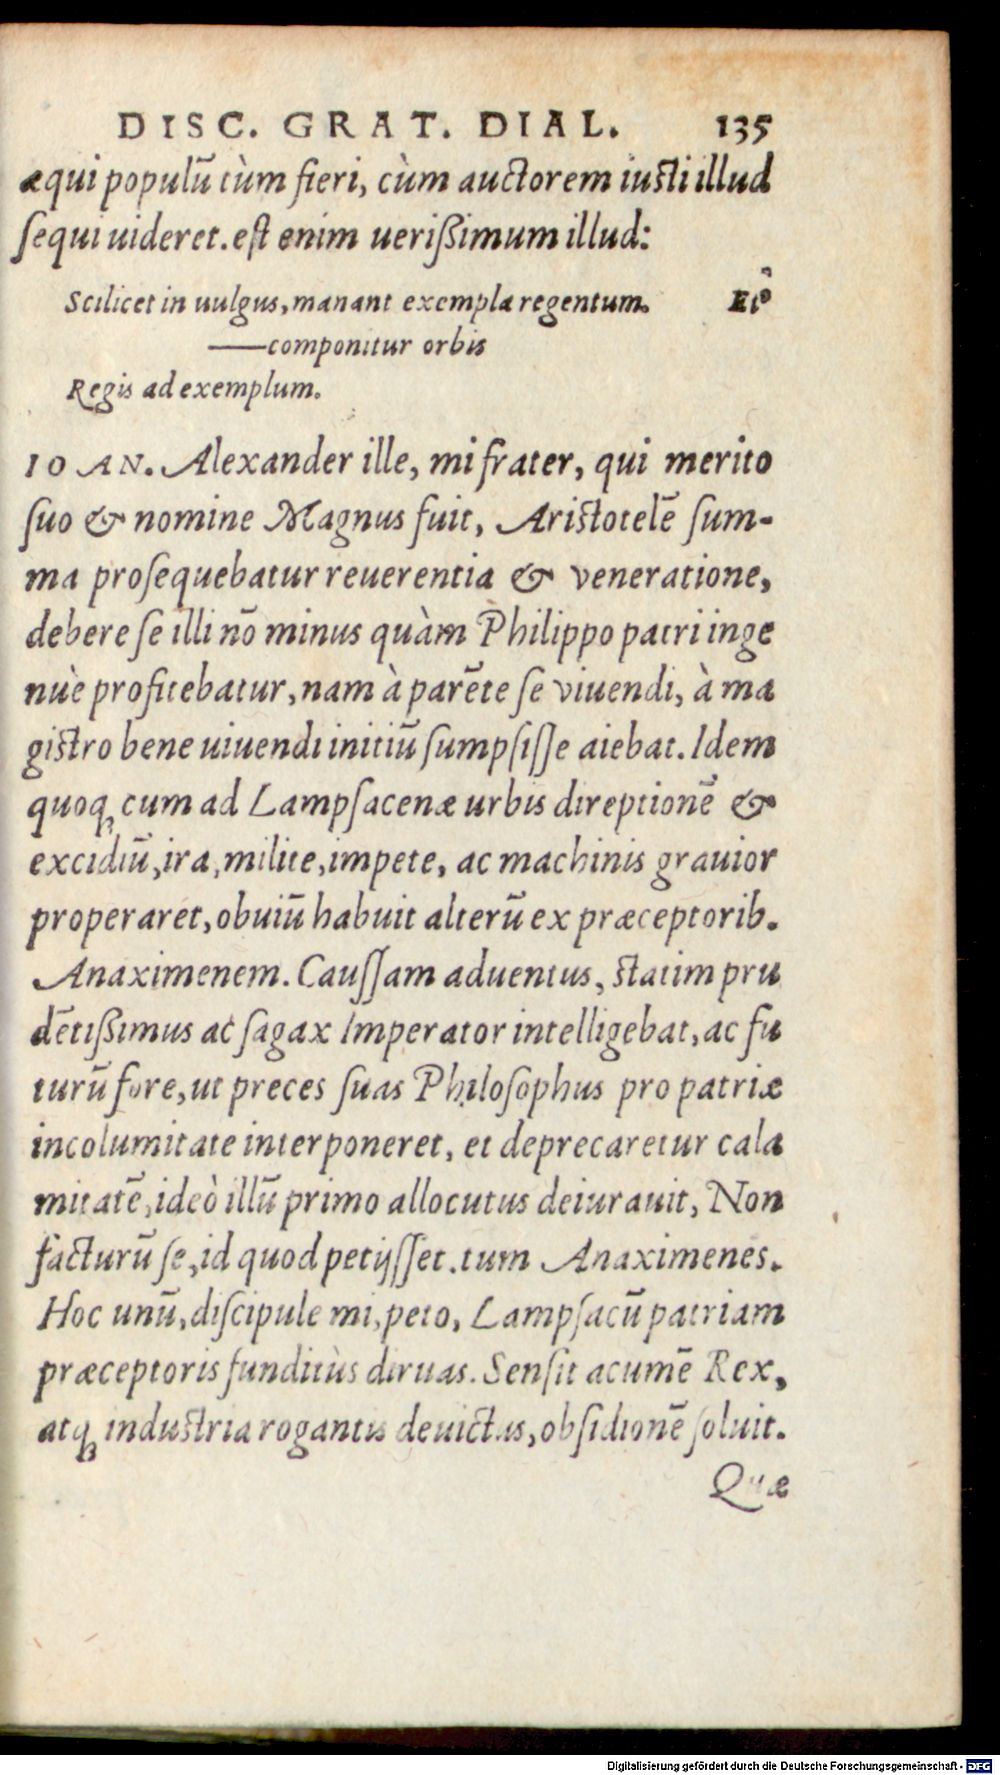 DISC. GRAT. DIAL. 135
æqui populū tùm fieri, cùm auctorem iusti illud
ſequi uideret. eſt enim uerißimum illud:
Scilicet in uulgus, manant exempla regentum. Et
——componitur orbis
Regis ad exemplum.
IOAN. Alexander ille, mi frater, qui merito
ſuo & nomine Magnus fuit, Ariſtotelē ſum-
ma proſequebatur reuerentia & veneratione,
debere ſe illi nō minus quàm Philippo patri inge
nuè profitebatur, nam à parēte ſe viuendi, à ma
giſtro bene uiuendi initiū ſumpſiſſe aiebat. Idem
quoq; cum ad Lampſacenæ urbis direptionē &
excidiū, ira, milite, impete, ac machinis grauior
properaret, obuiū habuit alterū ex præceptorib.
Anaximenem. Cauſſam aduentus, ſtatim pru
dētißimus ac ſagax Imperator intelligebat, ac fu
turū fore, ut preces ſuas Philoſophus pro patriæ
incolumitate interponeret, et deprecaretur cala
mitatē, ideò illū primo allocutus deiurauit, Non
facturū ſe, id quod petijſſet. tum Anaximenes.
Hoc unū, diſcipule mi, peto, Lampſacū patriam
præceptoris funditùs diruas. Senſit acumē Rex,
atq; induſtria rogantis deuictus, obſidionē ſoluit.
Quæ
Digitalisierung gefördert durch die Deutsche Forschungsgemeinschaft - DFG